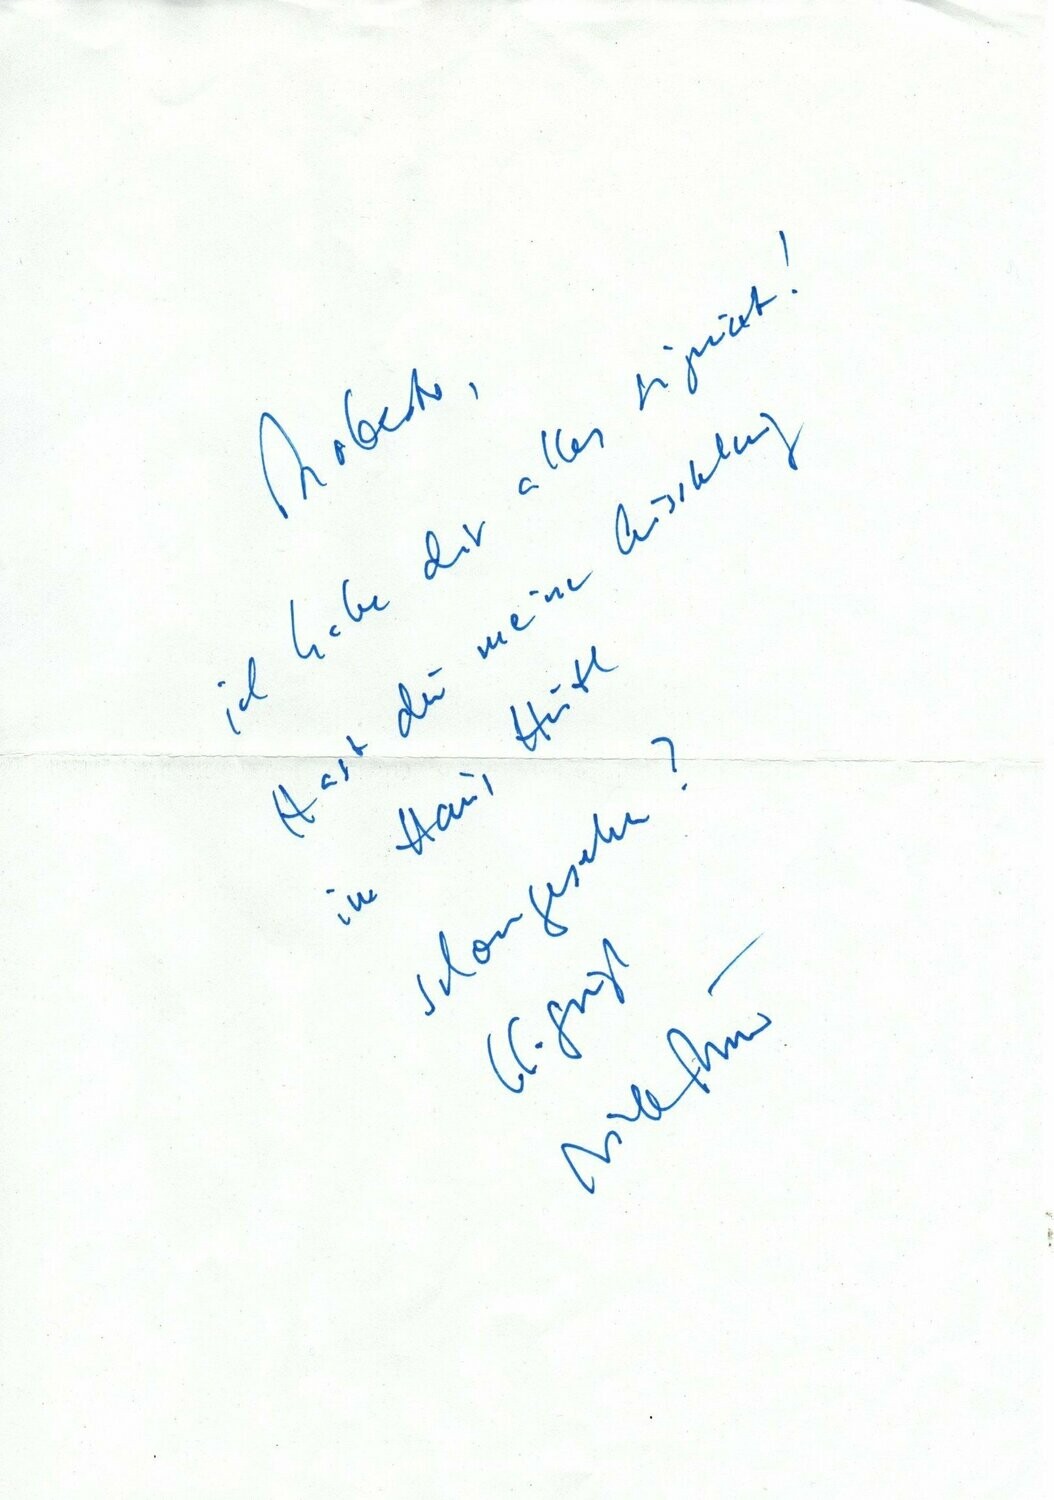 Roberto,
ich habe dir alles signiert!
Hast du meine Ausstellung
im Haus
schon gesehen?
ll. gruß